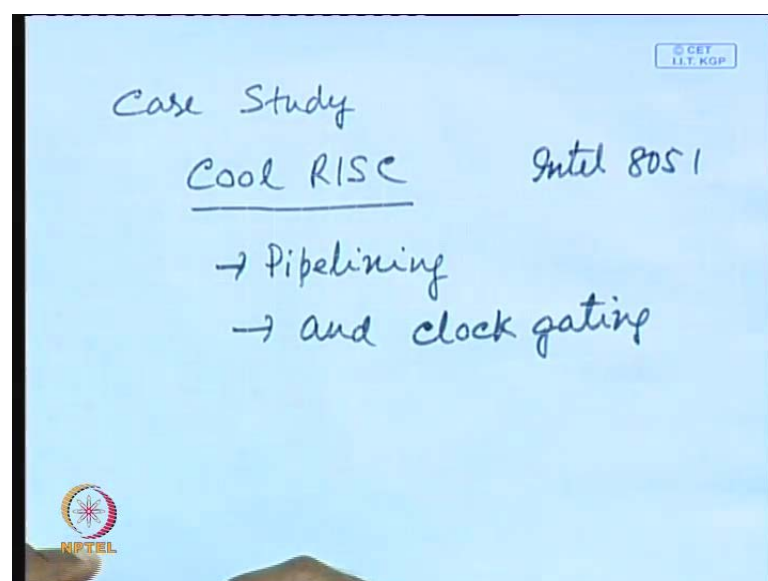 © CET
I.I.T. KGP
Case Study
Cool RISC Intel 8051
→ Pipelining
→ and clock gating
NPTEL